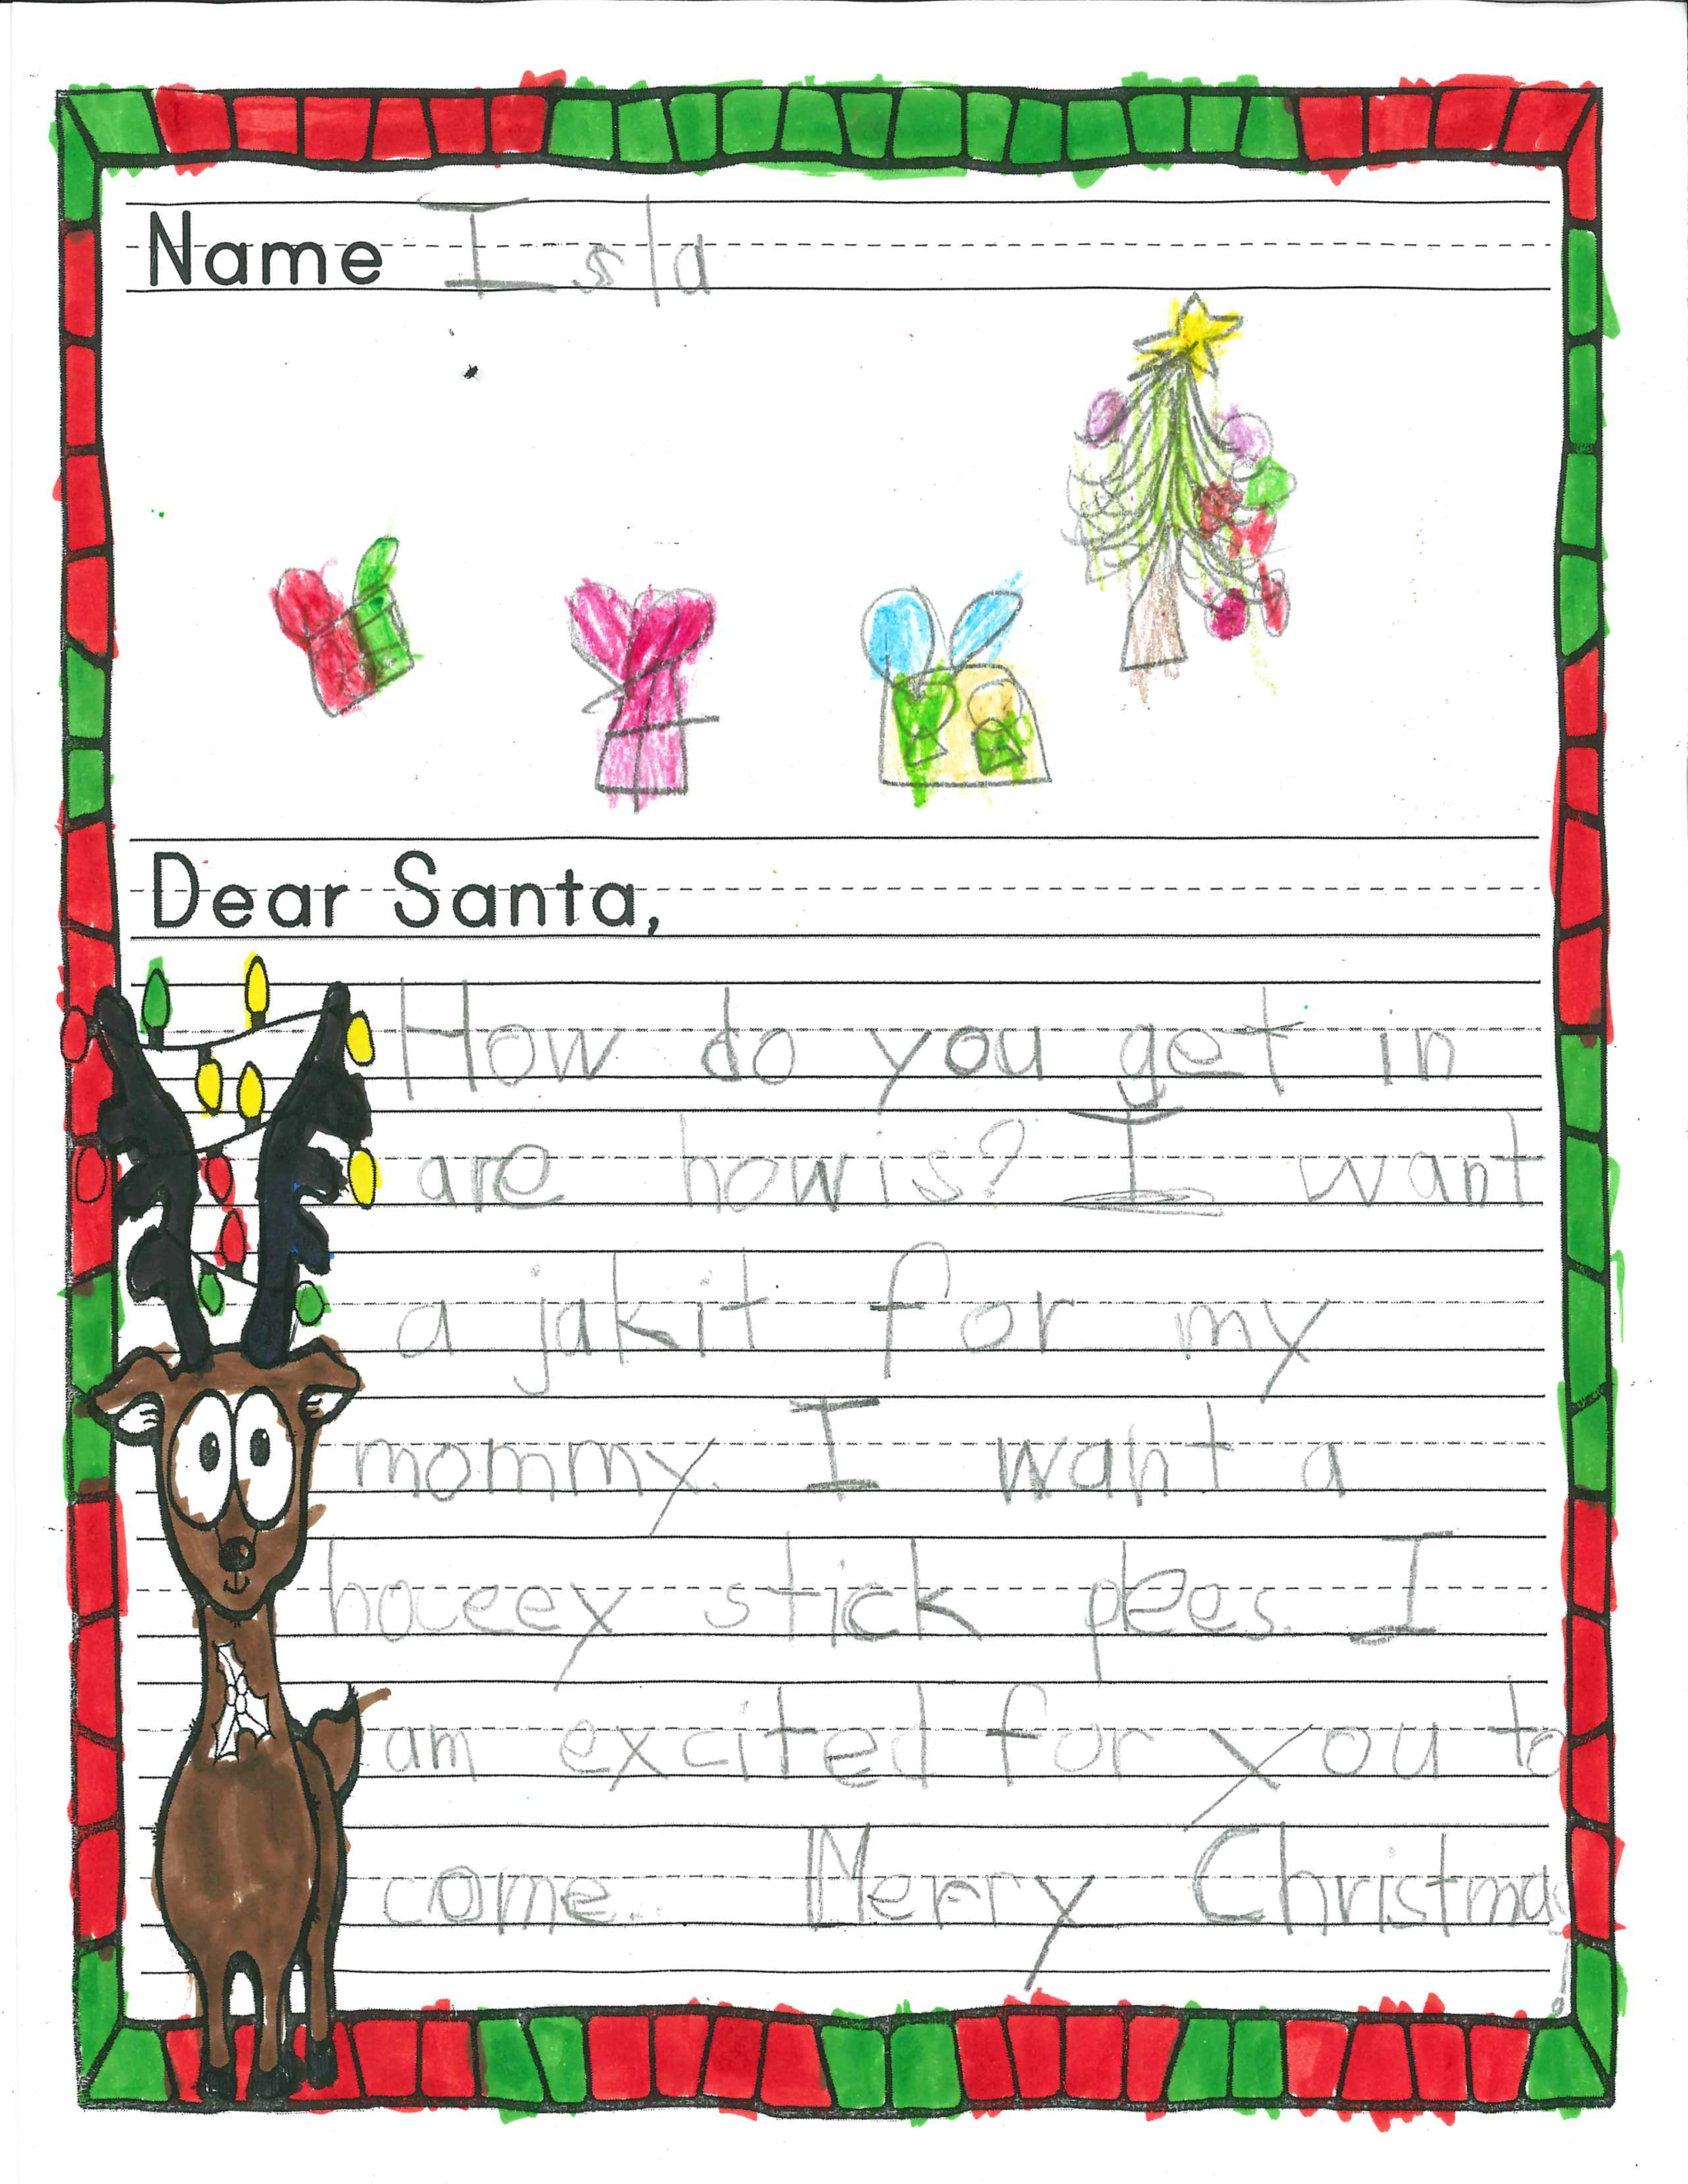 Name Isla
Dear Santa,
How do you get in
are howis? I want
a jakit for my
mommy. I want a
hoceey stick plees. I
am excited for you to
come. Merry Christmas!